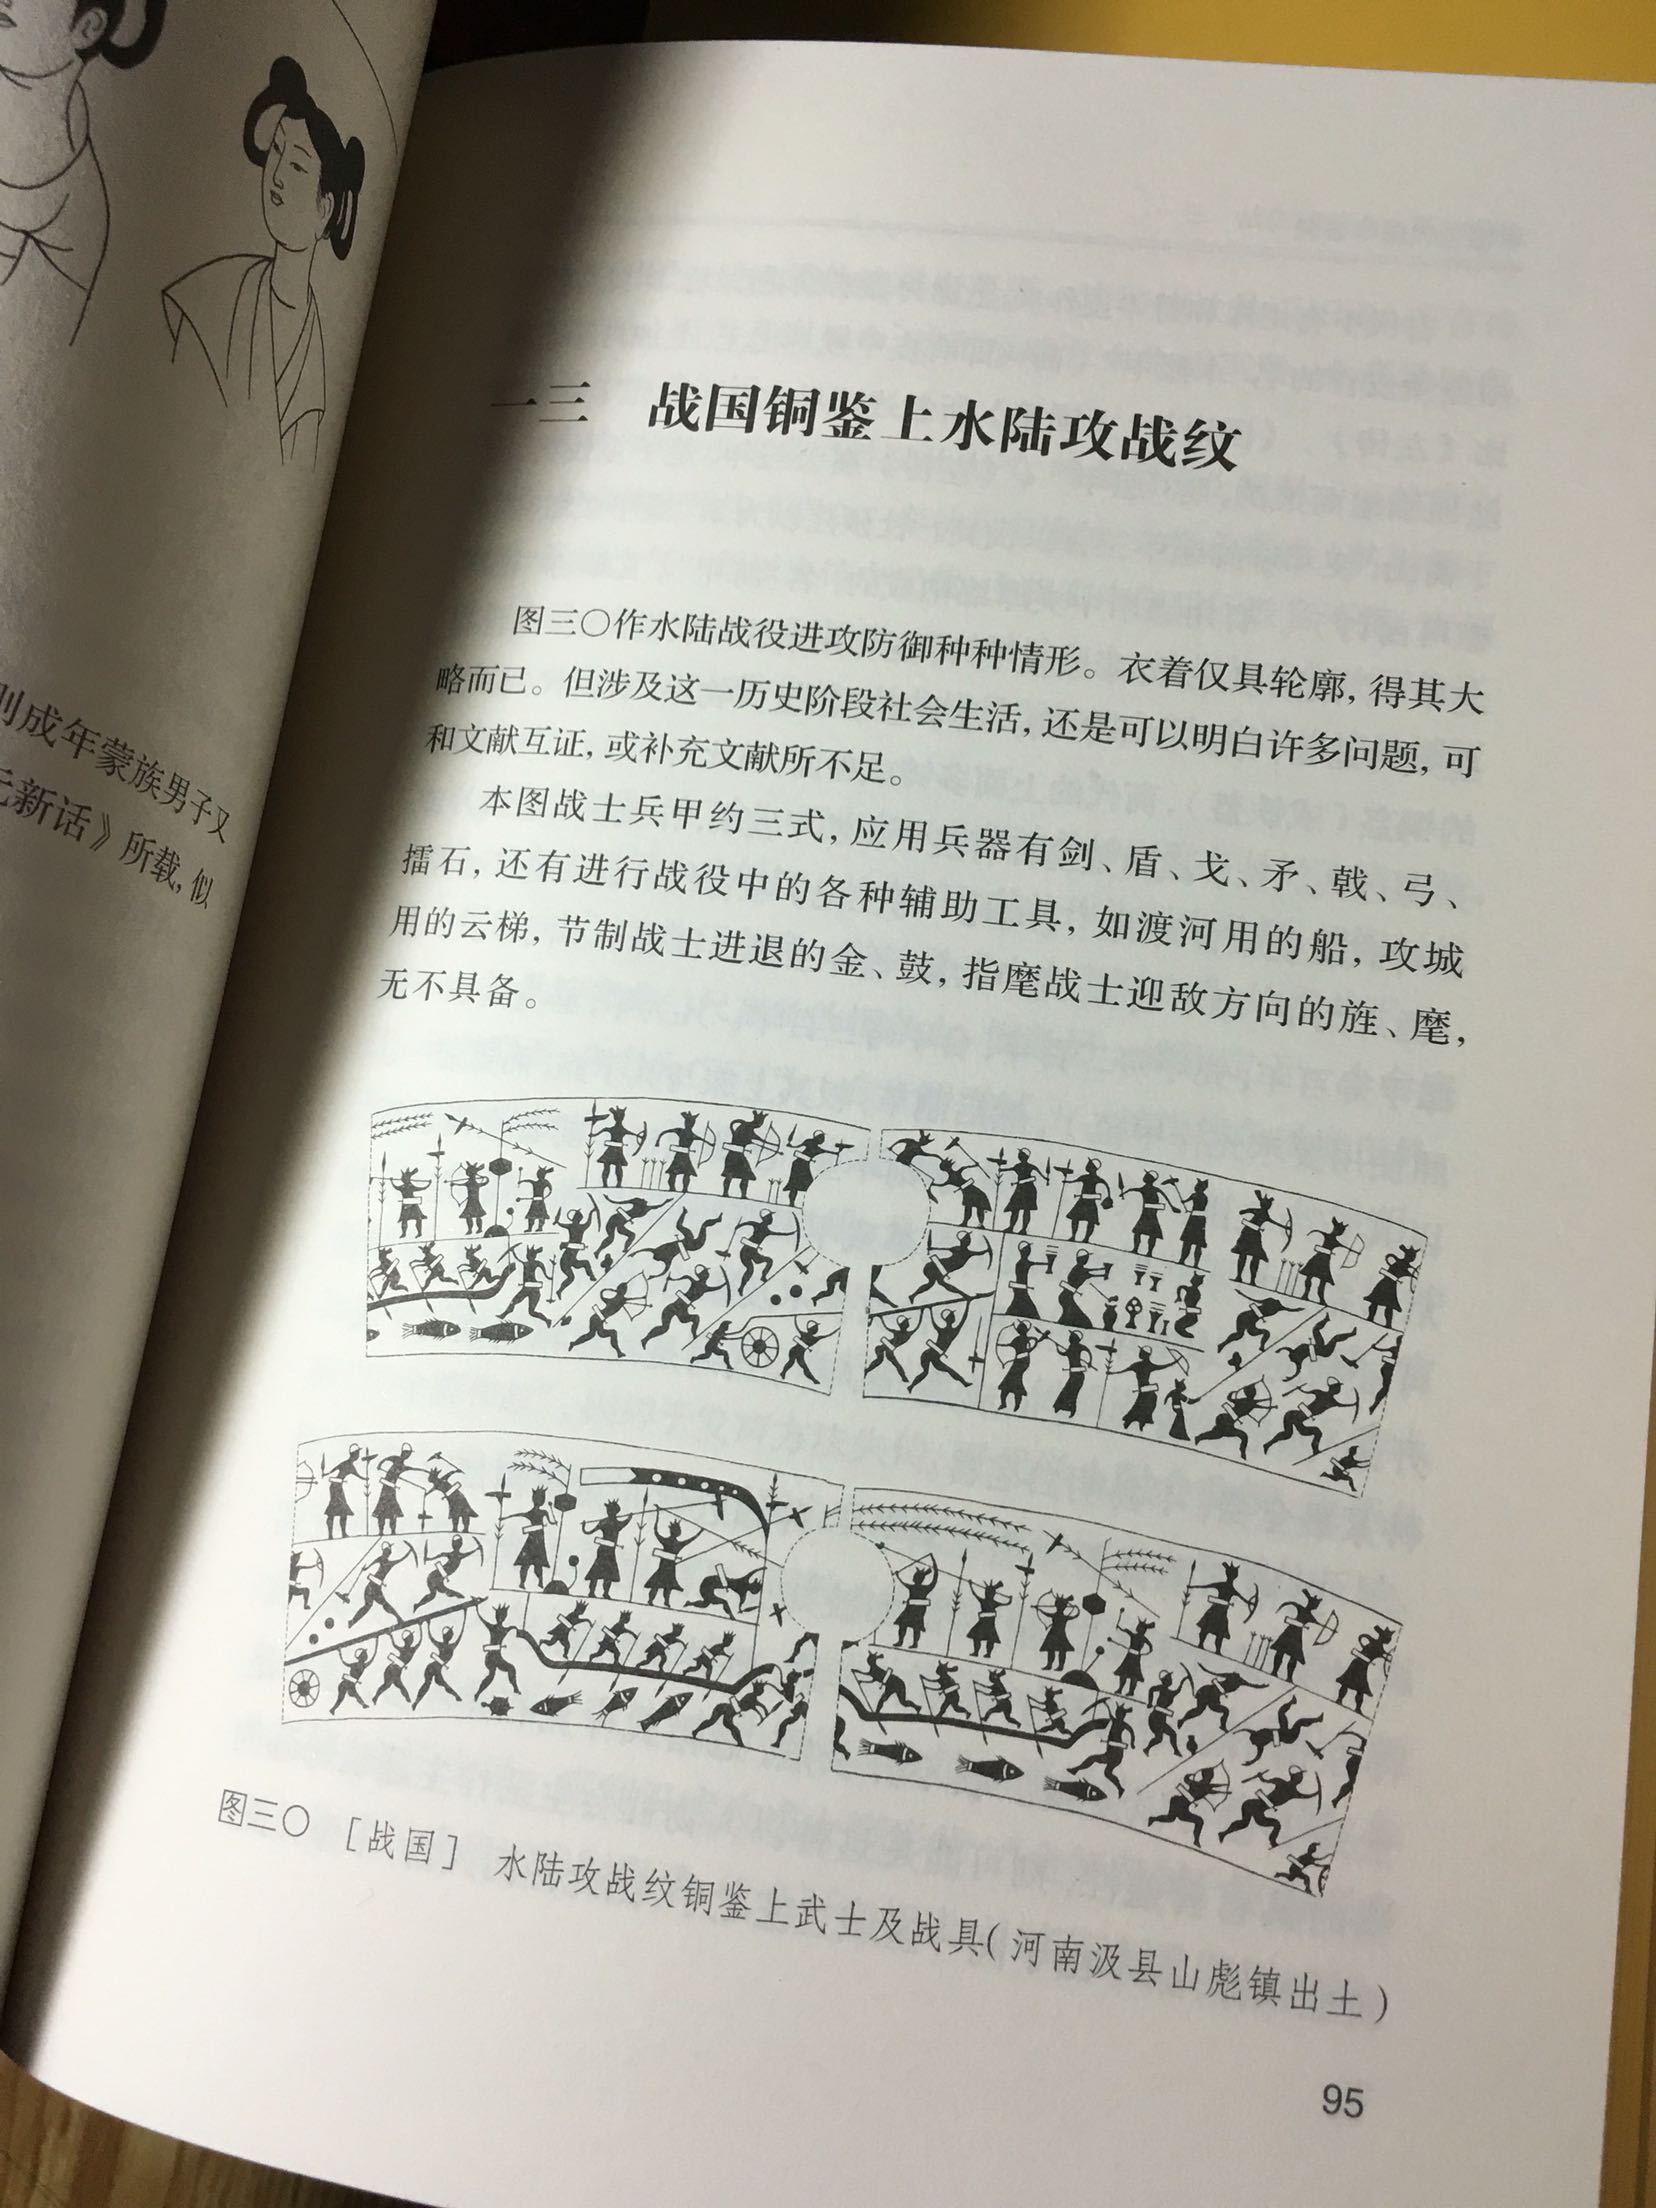 别成年蒙族男子又
元新话》所载,似
一三 战国铜鉴上水陆攻战纹
图三〇作水陆战役进攻防御种种情形。衣着仅具轮廓,得其大
略而已。但涉及这一历史阶段社会生活,还是可以明白许多问题,可
和文献互证,或补充文献所不足。
本图战士兵甲约三式,应用兵器有剑、盾、戈、矛、戟、弓、
擂石,还有进行战役中的各种辅助工具,如渡河用的船,攻城
用的云梯,节制战士进退的金、鼓,指麾战士迎敌方向的旌、麾,
无不具备。
图三〇 [战国] 水陆攻战纹铜鉴上武士及战具(河南汲县山彪镇出土)
95